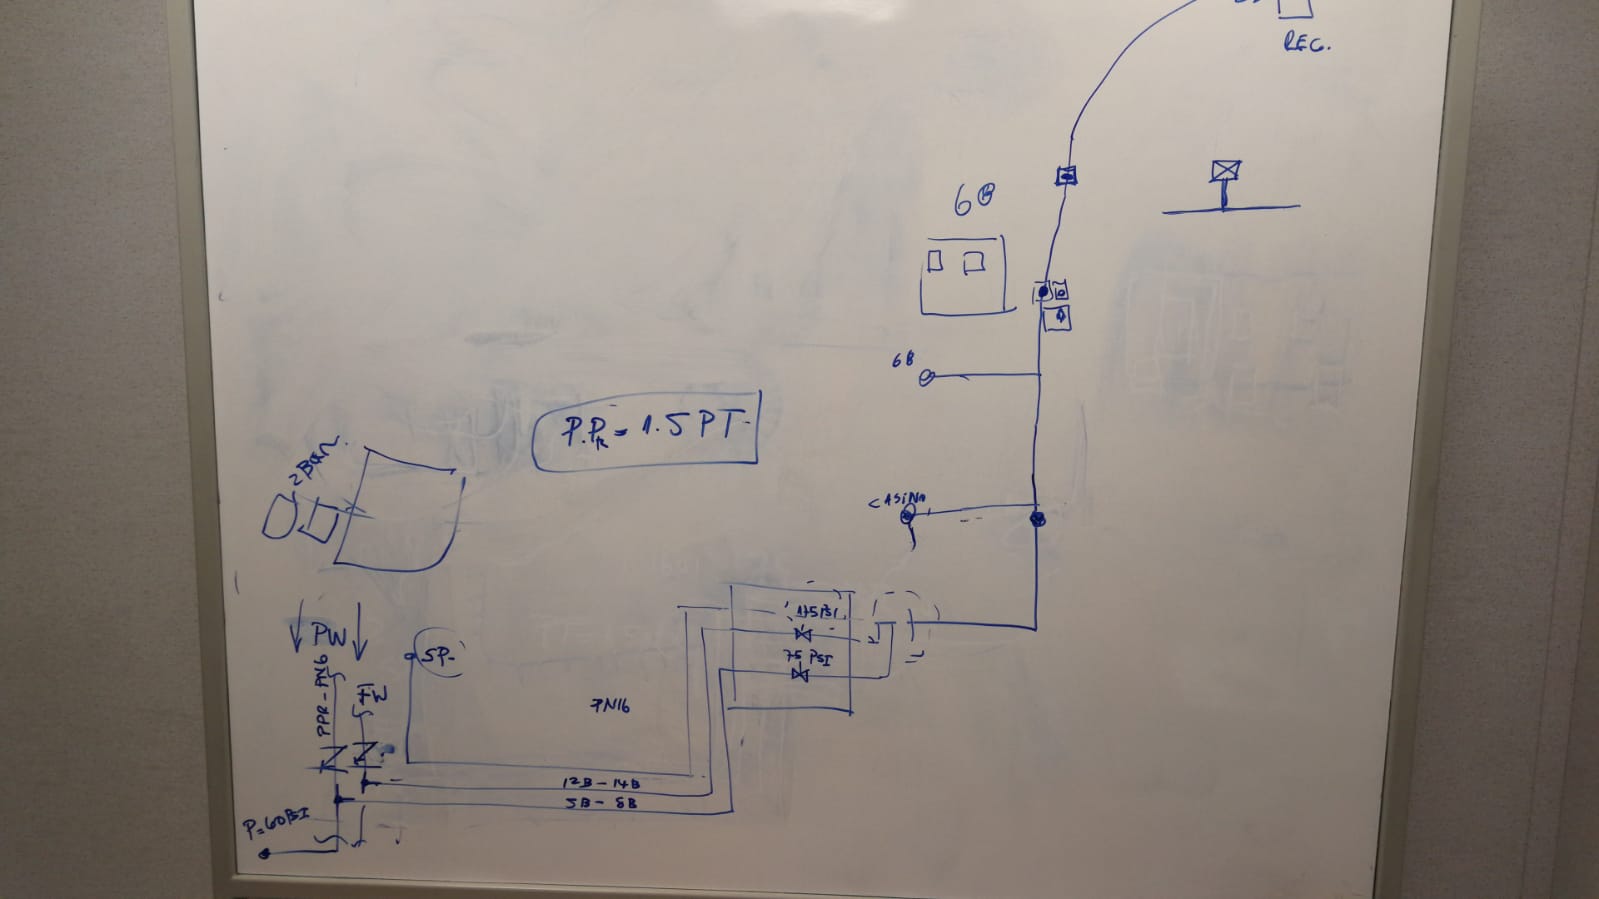 REG.
6B
6B
P.PR = 1.5 PT
2Bar.
CASINO
PW
175 PSI
75 PSI
SP-
PPR-PN6
PN16
12B-14B
5B-8B
P=60PSI